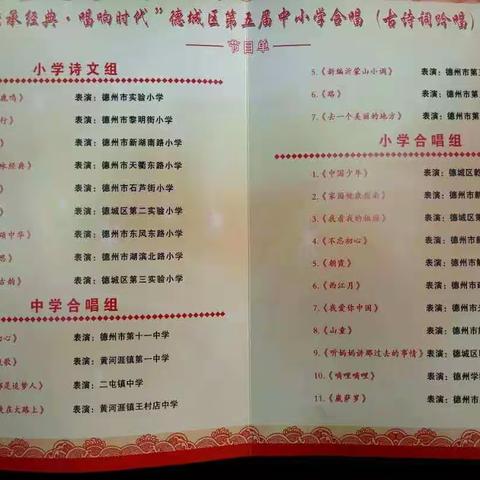 承经典·唱响时代”德城区第五届中小学合唱(古诗词吟唱)
节目单
小学诗文组
鹿鸣》 表演:德州市实验小学
行》 表演:德州市黎明街小学
》 表演:德州市新湖南路小学
咏经典》 表演:德州市天衢东路小学
》 表演:德州市石芦街小学
》 表演:德城区第二实验小学
颂中华》 表演:德州市东风东路小学
思》 表演:德州市湖滨北路小学
古韵》 表演:德城区第三实验小学
中学合唱组
初心》 表演:德州市第十一中学
歌》 表演:黄河涯镇第一中学
都是追梦人》 表演:二屯镇中学
在大路上》 表演:黄河涯镇王村店中学
5.《新编沂蒙山小调》 表演:德州市第
6.《路》 表演:德州市第
7.《去一个美丽的地方》 表演:德州市第
小学合唱组
1.《中国少年》 表演:德城区
2.《家园健康指南》 表演:德州市
3.《我有我的祖国》 表演:德城区第
4.《不忘初心》 表演:德州市
5.《朝霞》 表演:德州市
6.《西江月》 表演:德州市
7.《我爱你中国》 表演:德州市
8.《山童》 表演:德州市
9.《听妈妈讲那过去的事情》 表演:德城区
10.《嘀哩嘀哩》 表演:德州学
11.《威萨罗》 表演:德州市